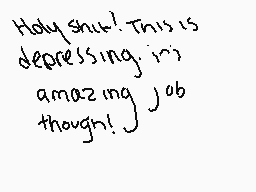 Holy shit! This is
depressing. :'(
amazing job
though!